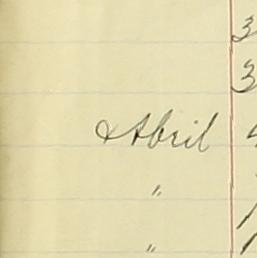 3
3
Abril 4
"
"